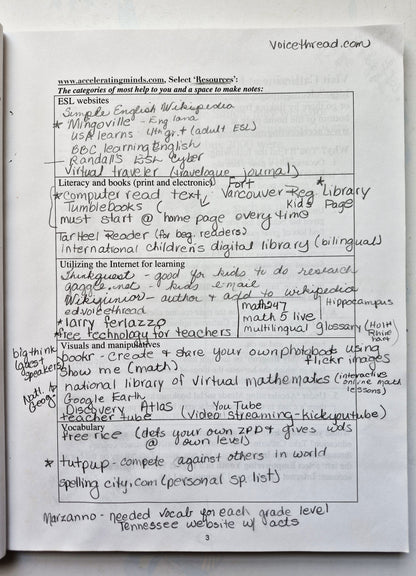 Voicethread.com
www.acceleratingminds.com, Select 'Resources':
The categories of most help to you and a space to make notes:
ESL websites
Simple English Wikipedia
* Mingoville - England
USA learns 4th gr.↑ (adult ESL)
BBC learning English
Randall's ESL Cyber
Virtual traveler (travelogue journal)
Literacy and books (print and electronic)
Fort
* computer read text, Vancouver Reg. Library *
Tumblebooks ( Kids Page
must start @ home page every time
TarHeel Reader (for beg. readers)
international children's digital library (bilingual)
Utilizing the Internet for learning
Thinkquest - good for kids to do research
gaggle.net - kids e-mail
Wikijunior - author & add to wikipedia
edvoicethread
math247
math 5 live
multilingual glossary (Holt Rhine hart
Hippocampus
* larry ferlazzo
* free technology for teachers
Visuals and manipulatives
bigthink
latest
speakers
Natl.
Geog
bookr - create & share your own photobooks using
flickr images
Show me (math)
national library of virtual mathematics (interactive
online math
lessons)
Google Earth
Discovery Atlas YouTube
teacher tube (video streaming - kickyoutube)
Vocabulary
free rice (defs your own ZPD & gives wds
@ own level)
* tutpup - compete against others in world
spelling city.com (personal sp. list)
Marzanno - needed vocab for each grade level
Tennessee website w/ acts
3